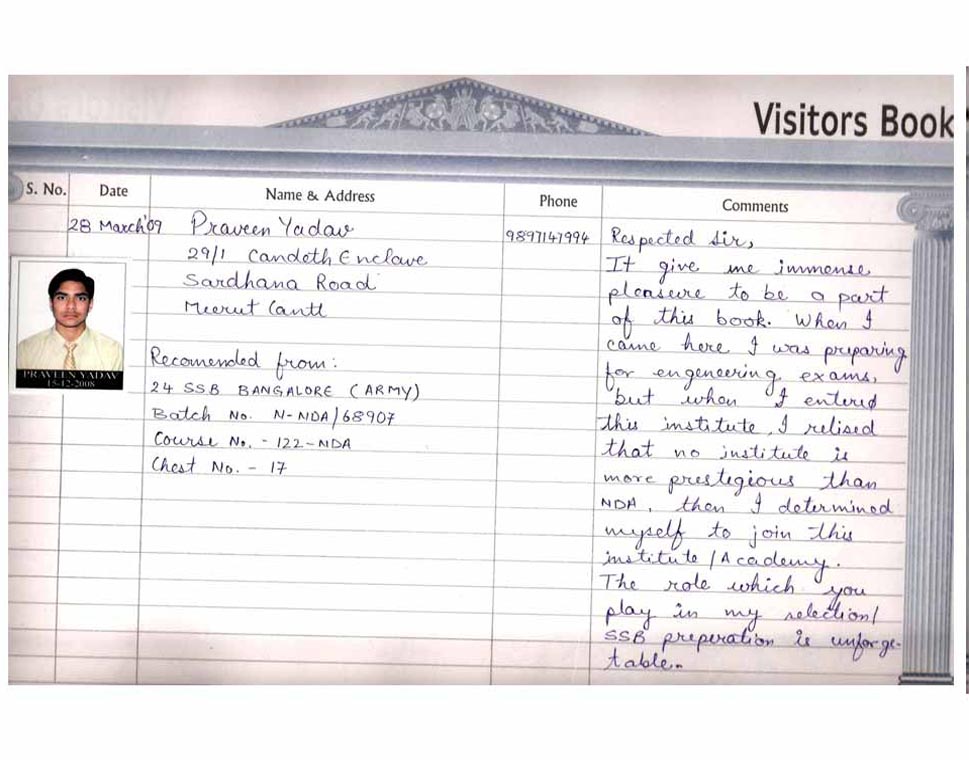 Visitors Book
S. No.
Date
Name & Address
Phone
Comments
28 March'09
Praveen Yadav
29/1 Candeth Enclave
Sardhana Road
Meerut Cantt
9897147994
PRAVEEN YADAV
15-12-2008
Recomended from:
24 SSB BANGALORE (ARMY)
Batch No. N-NDA/68907
Course No. - 122-NDA
Chest No. - 17
Respected Sir,
It give me immense
pleasure to be a part
of this book. When I
came here I was preparing
for engeneering exams,
but when I entered
this institute, I relised
that no institute is
more prestegious than
NDA, then I determined
myself to join this
institute/Academy.
The role which you
play in my selection/
SSB preperation is unforge-
table.